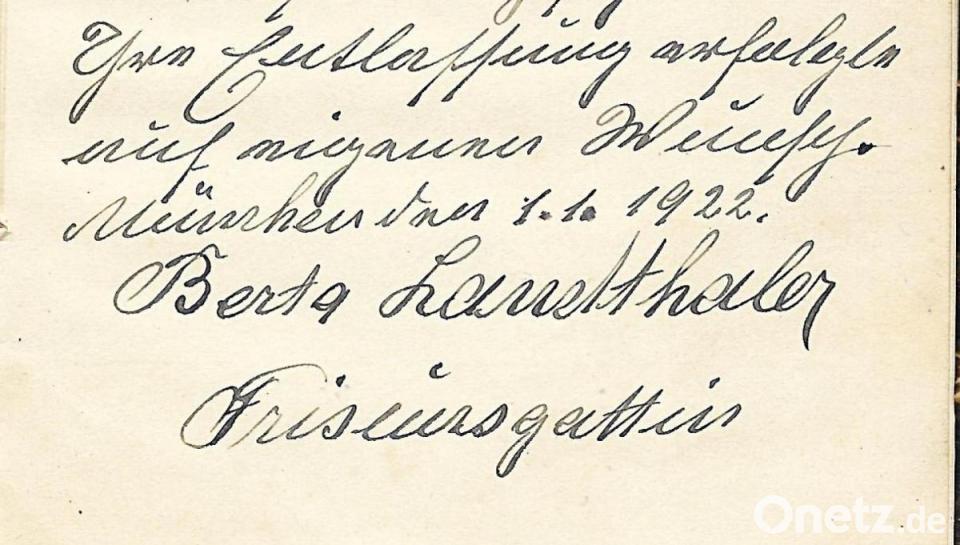 Ihre Entlassung erfolgte
auf eigenen Wunsch.
München den 1.1.1922.
Berta Landthaler
Friseursgattin
Onetz.de